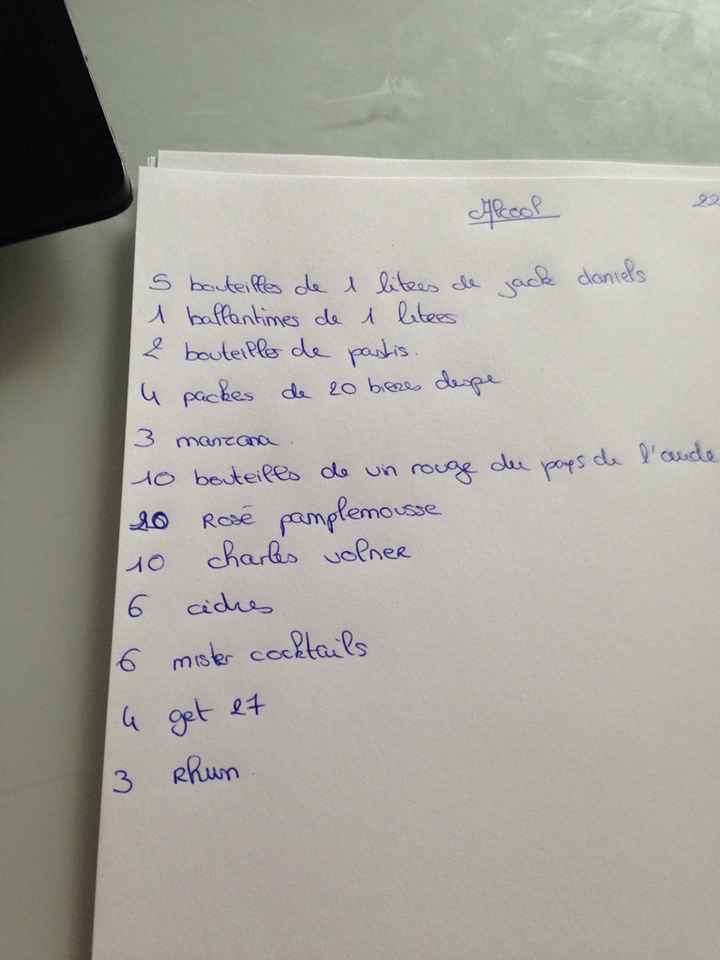 Alcool 22
5 bouteilles de 1 litres de jack daniels
1 ballantimes de 1 litres
2 bouteilles de pastis.
4 packes de 20 bieres despe
3 manzana.
10 bouteilles de vin rouge du pays de l'aude
20 Rosé pamplemousse
10 charles volner
6 cidres
6 mister cocktails
4 get 27
3 Rhum